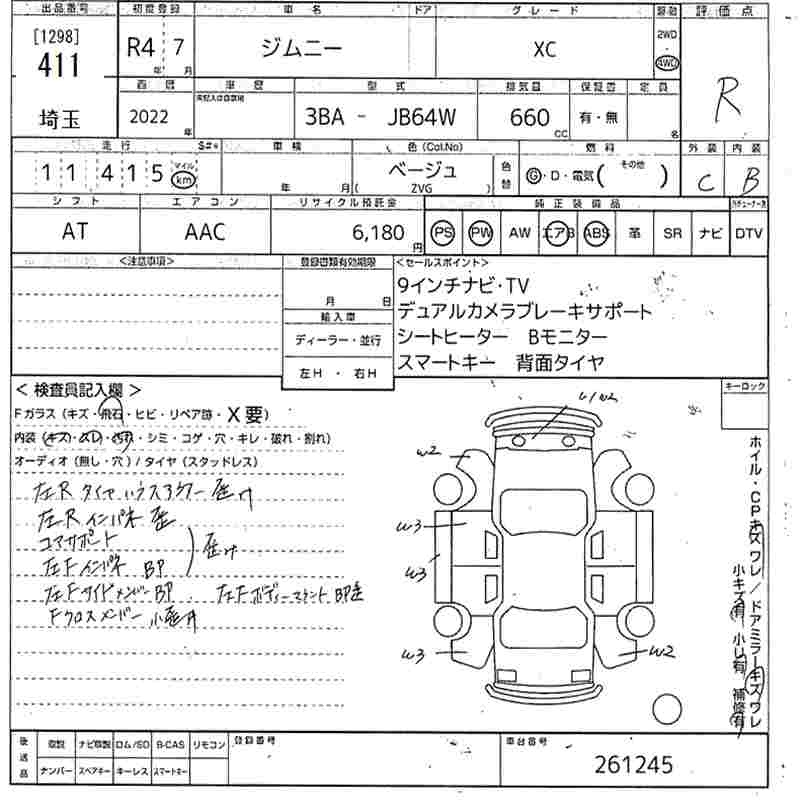 出品番号 初度登録 車名 ドア グレード 駆動 評価点
[1298] 411 R4 7 年 月 ジムニー XC 2WD 4WD R
埼玉 西暦 車歴 型式 排気量 保証書 定員
2022 年 未記入は自家用 3BA - JB64W 660 CC 有・無 名
走行 S#* 車検 色 (Col.No) 燃料 外装 内装
11 415 マイル km 年 月 ベージュ ( ZVG ) 色替 G・D・電気 ( その他 ) C B
シフト エアコン リサイクル預託金 純正装備品
AT AAC 6,180 円 PS PW AW エアB ABS 革 SR ナビ DTV
<注意事項> 登録書類有効期限 <セールスポイント>
月 日 9インチナビ・TV
輸入車 デュアルカメラブレーキサポート
ディーラー・並行 シートヒーター Bモニター
左H ・ 右H スマートキー 背面タイヤ
< 検査員記入欄 > キーロック
Fガラス (キズ・飛石・ヒビ・リペア跡・X要)
内装 (キズ・ヌレ・汚れ・シミ・コゲ・穴・キレ・破れ・割れ)
オーディオ (無し・穴) / タイヤ (スタッドレス)
左R タイヤハウスアウター 歪け
左R インパネ 歪
コアサポート
左F インパネ BP 歪け
左F サイドメンバー BP 左F ボディーマウント BP歪
Fクロスメンバー 小歪け
W2
W3
W3
W3
W2
ホイル・CPキズ ワレ / ドアミラーキズワレ
小キズ有 小U有 補修有
後送品 取説 ナビ取説 ロム/SD B-CAS リモコン 登録番号 車台番号
ナンバー スペアキー キーレス スマートキー 261245